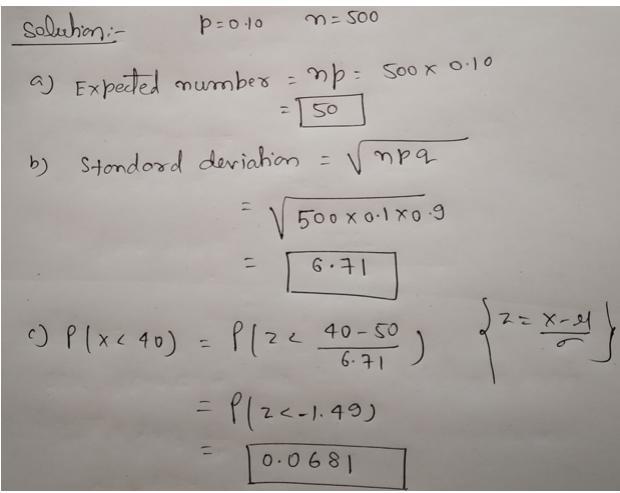 Solution:- p=0.10 n=500
a) Expected number = np = 500 x 0.10
= 50
b) Standard deviation = √npq
= √500x0.1x0.9
= 6.71
c) P(x< 40) = P(z < (40-50)/6.71) {z = (x-μ)/σ}
= P(z<-1.49)
= 0.0681